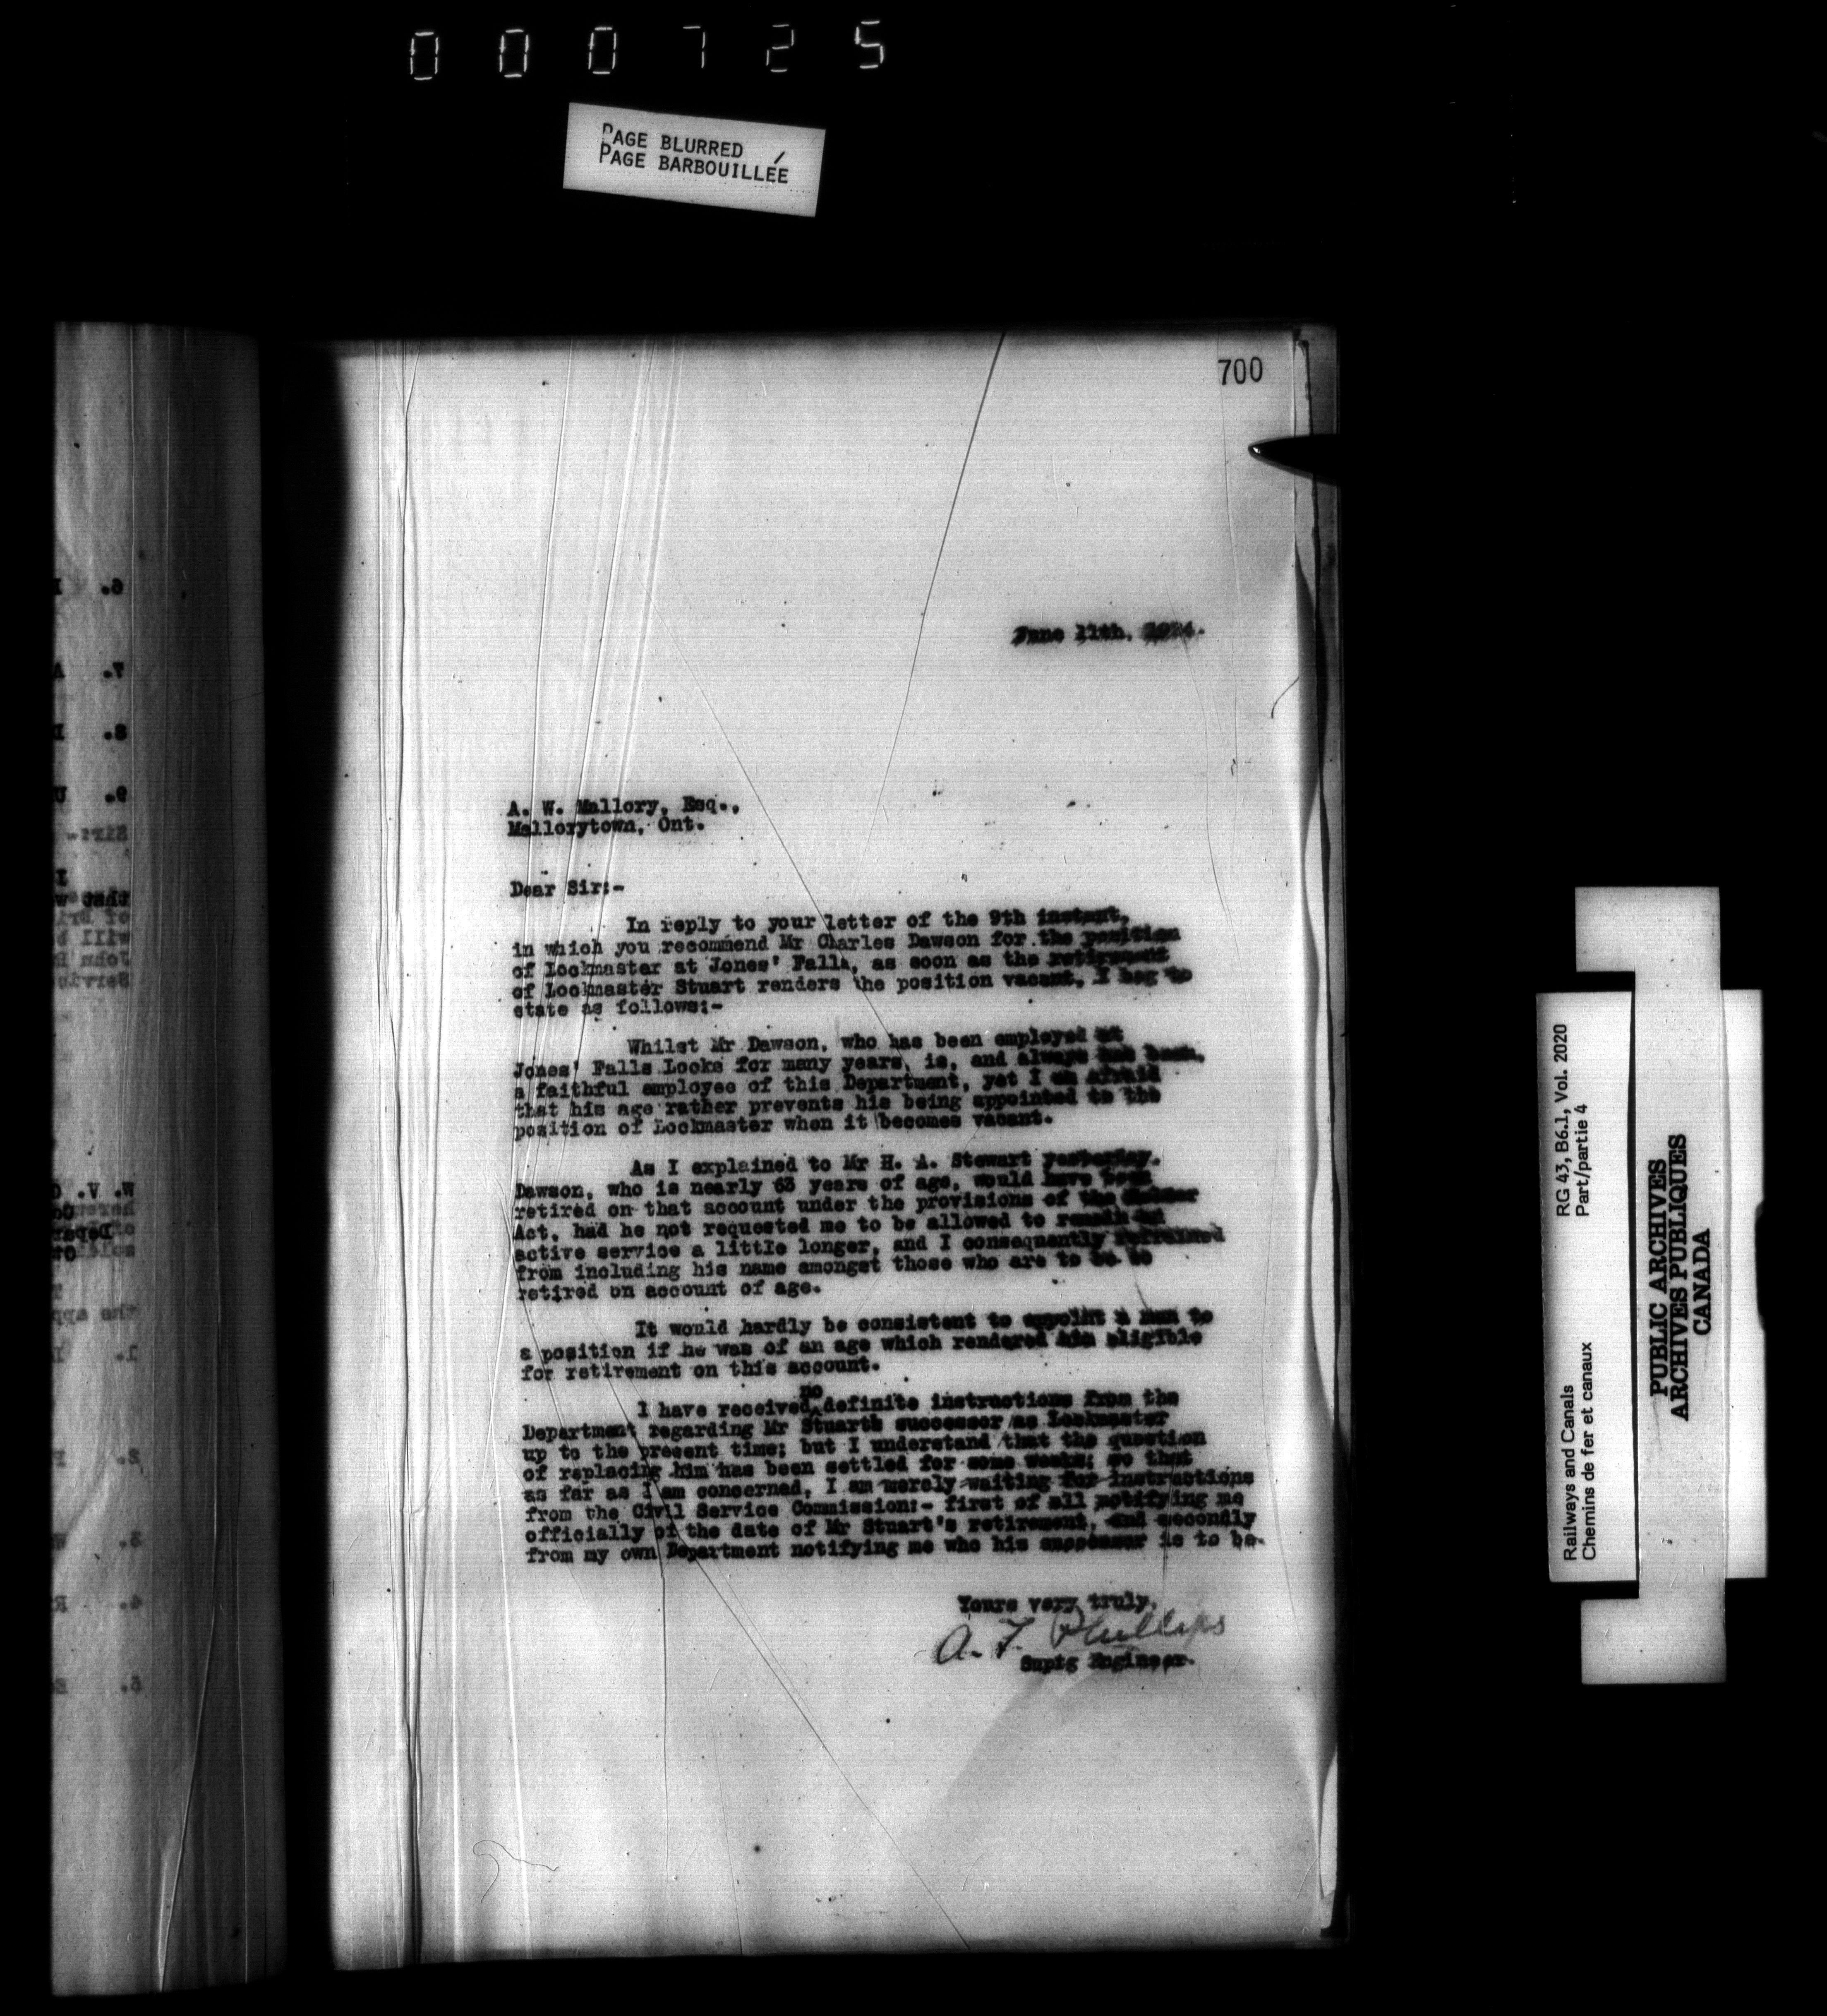 000725
PAGE BLURRED
PAGE BARBOUILLÉE
700
June 11th, 1924.
A. W. Mallory, Esq.,
Mallorytown, Ont.
Dear Sir:-
In reply to your letter of the 9th instant,
in which you recommend Mr Charles Dawson for the position
of Lockmaster at Jones' Falls, as soon as the retirement
of Lockmaster Stuart renders the position vacant, I beg to
state as follows:-
Whilst Mr Dawson, who has been employed at
Jones' Falls Locks for many years, is, and always has been,
a faithful employee of this Department, yet I am afraid
that his age rather prevents his being appointed to the
position of Lockmaster when it becomes vacant.
As I explained to Mr H. A. Stewart yesterday.
Dawson, who is nearly 63 years of age, would have been
retired on that account under the provisions of the Calder
Act, had he not requested me to be allowed to remain
active service a little longer, and I consequently refrained
from including his name amongst those who are to be
retired on account of age.
It would hardly be consistent to appoint a man to
a position if he was of an age which rendered him eligible
for retirement on this account.
no
I have received definite instructions from the
Department regarding Mr Stuarts successor as Lockmaster
up to the present time; but I understand that the question
of replacing him has been settled for some weeks; so that
as far as I am concerned, I am merely waiting for instructions
from the Civil Service Commission:- first of all notifying me
officially of the date of Mr Stuart's retirement, and secondly
from my own Department notifying me who his successor is to be.
Yours very truly,
A. F. Phillips
Suptg Engineer.
6.
7. A
8.
9. U
Sir:-
Railways and Canals
Chemins de fer et canaux
RG 43, B6.1, Vol. 2020
Part/partie 4
PUBLIC ARCHIVES
ARCHIVES PUBLIQUES
CANADA